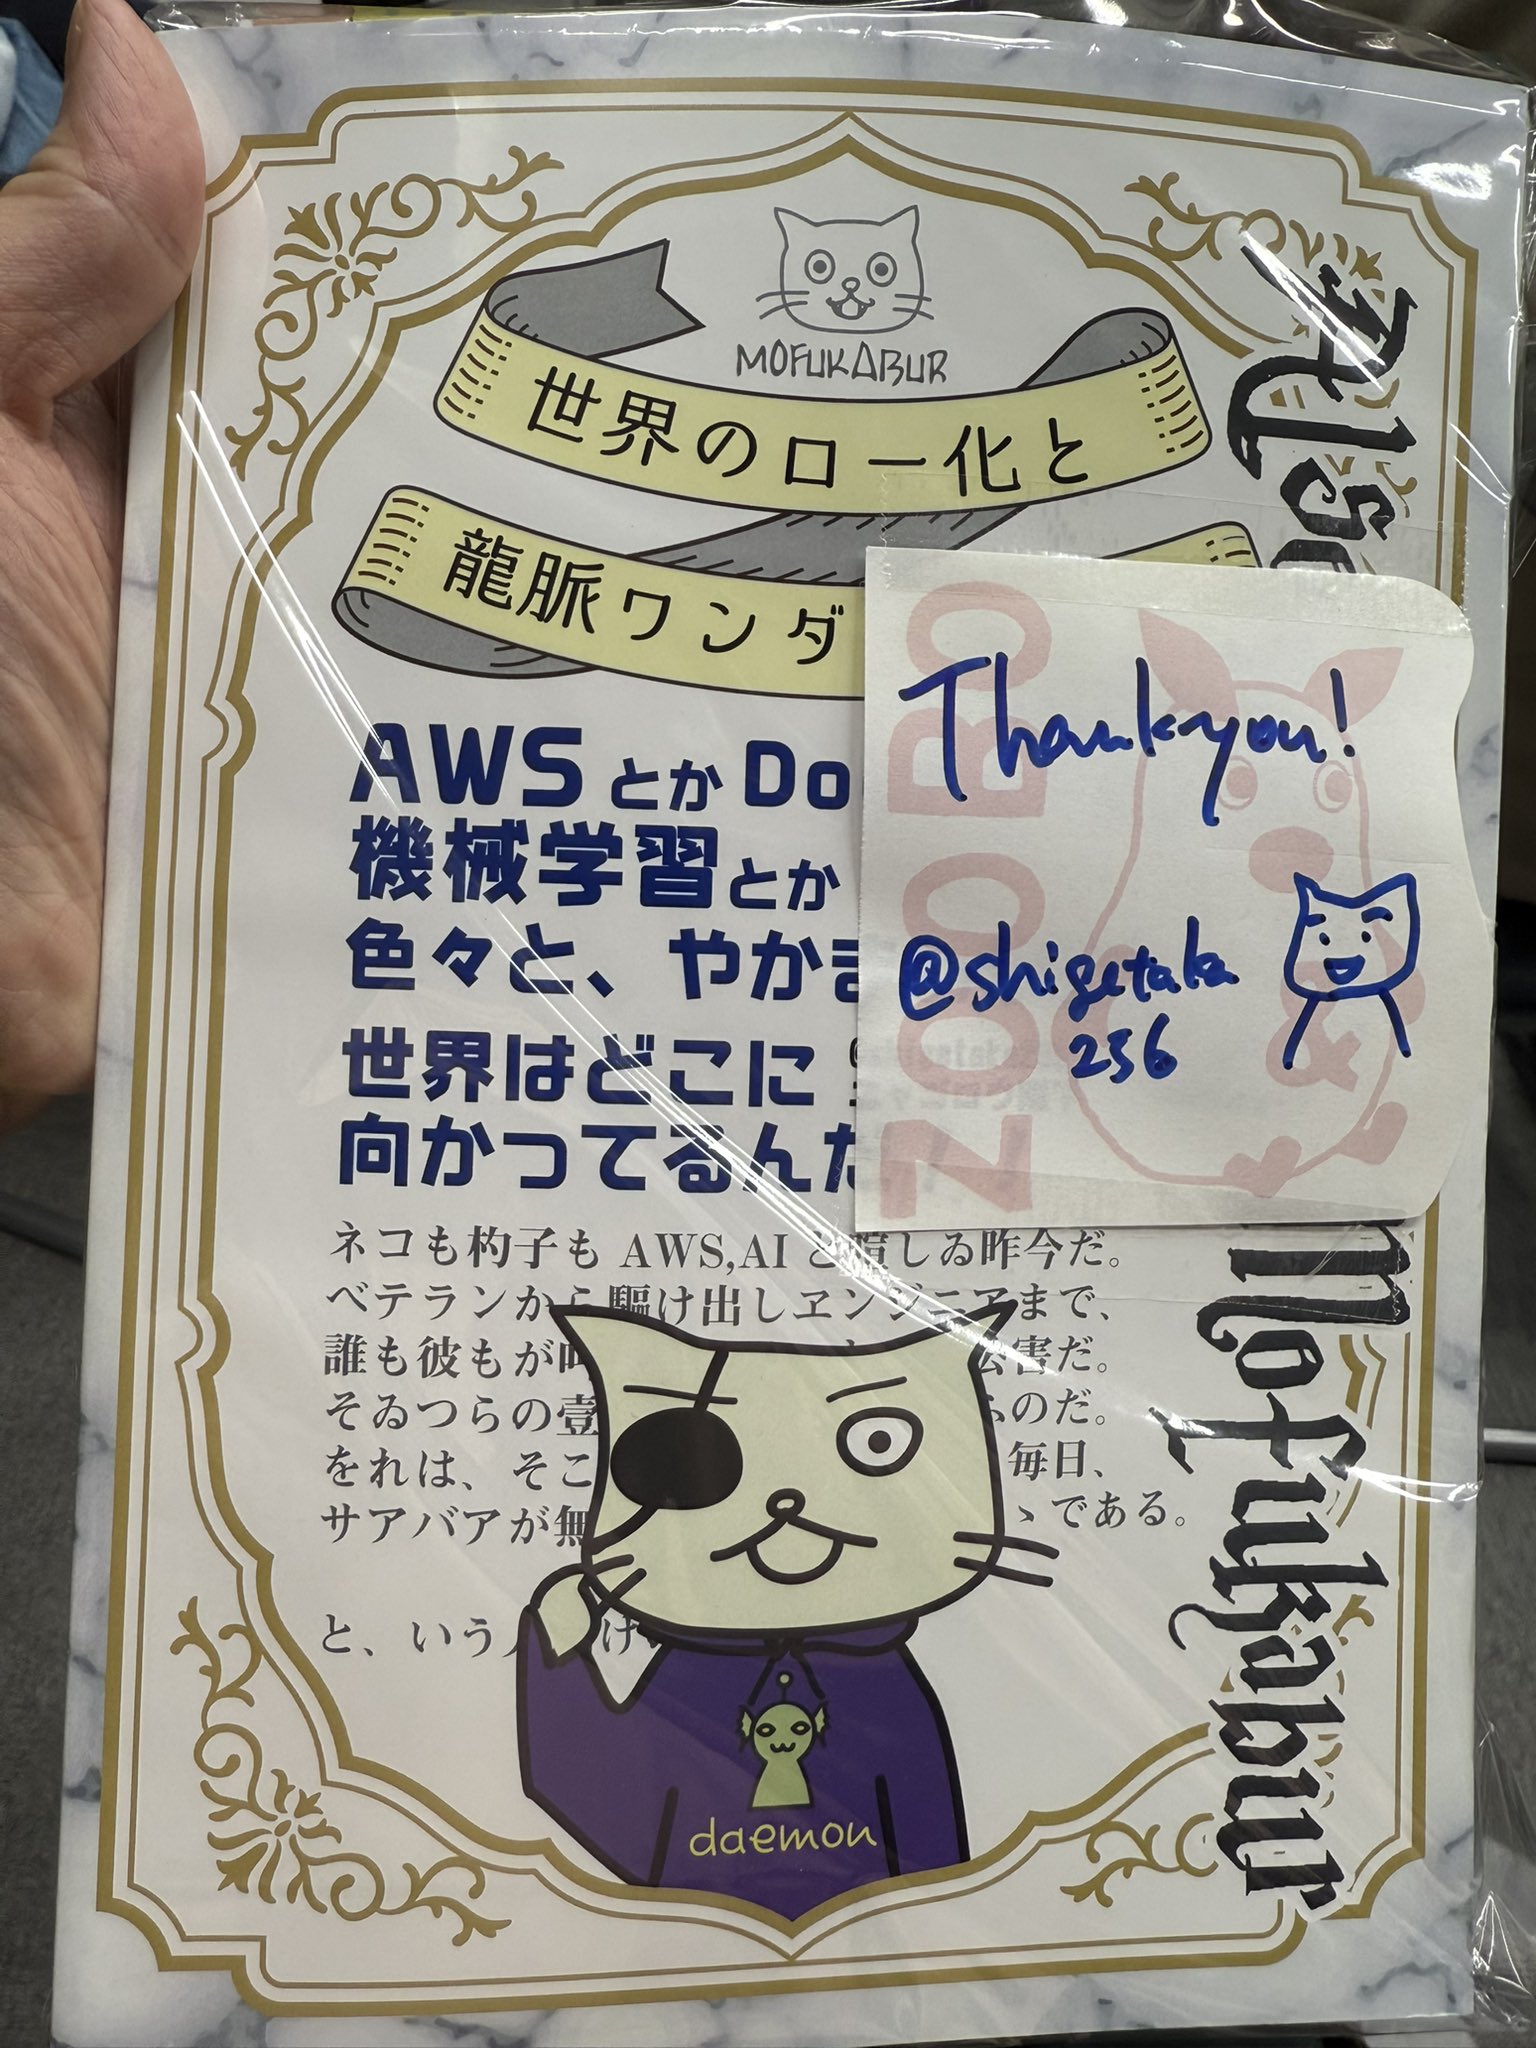 MOFUKABUR
世界のロー化と
龍脈ワンダ
AWSとかDo
機械学習とか
色々と、やかま
世界はどこに
向かってるんだ
ネコも杓子もAWS,AIと喧しゐ昨今だ。
ベテランから駆け出しヱンジニアまで、
誰も彼もが 公害だ。
そゐつらの壹 のだ。
をれは、そこ 毎日、
サアバアが無 ゝである。
と、いう
daemon
Mofukabur
Thank you!
@shigetaka
256
ZOO BO
&